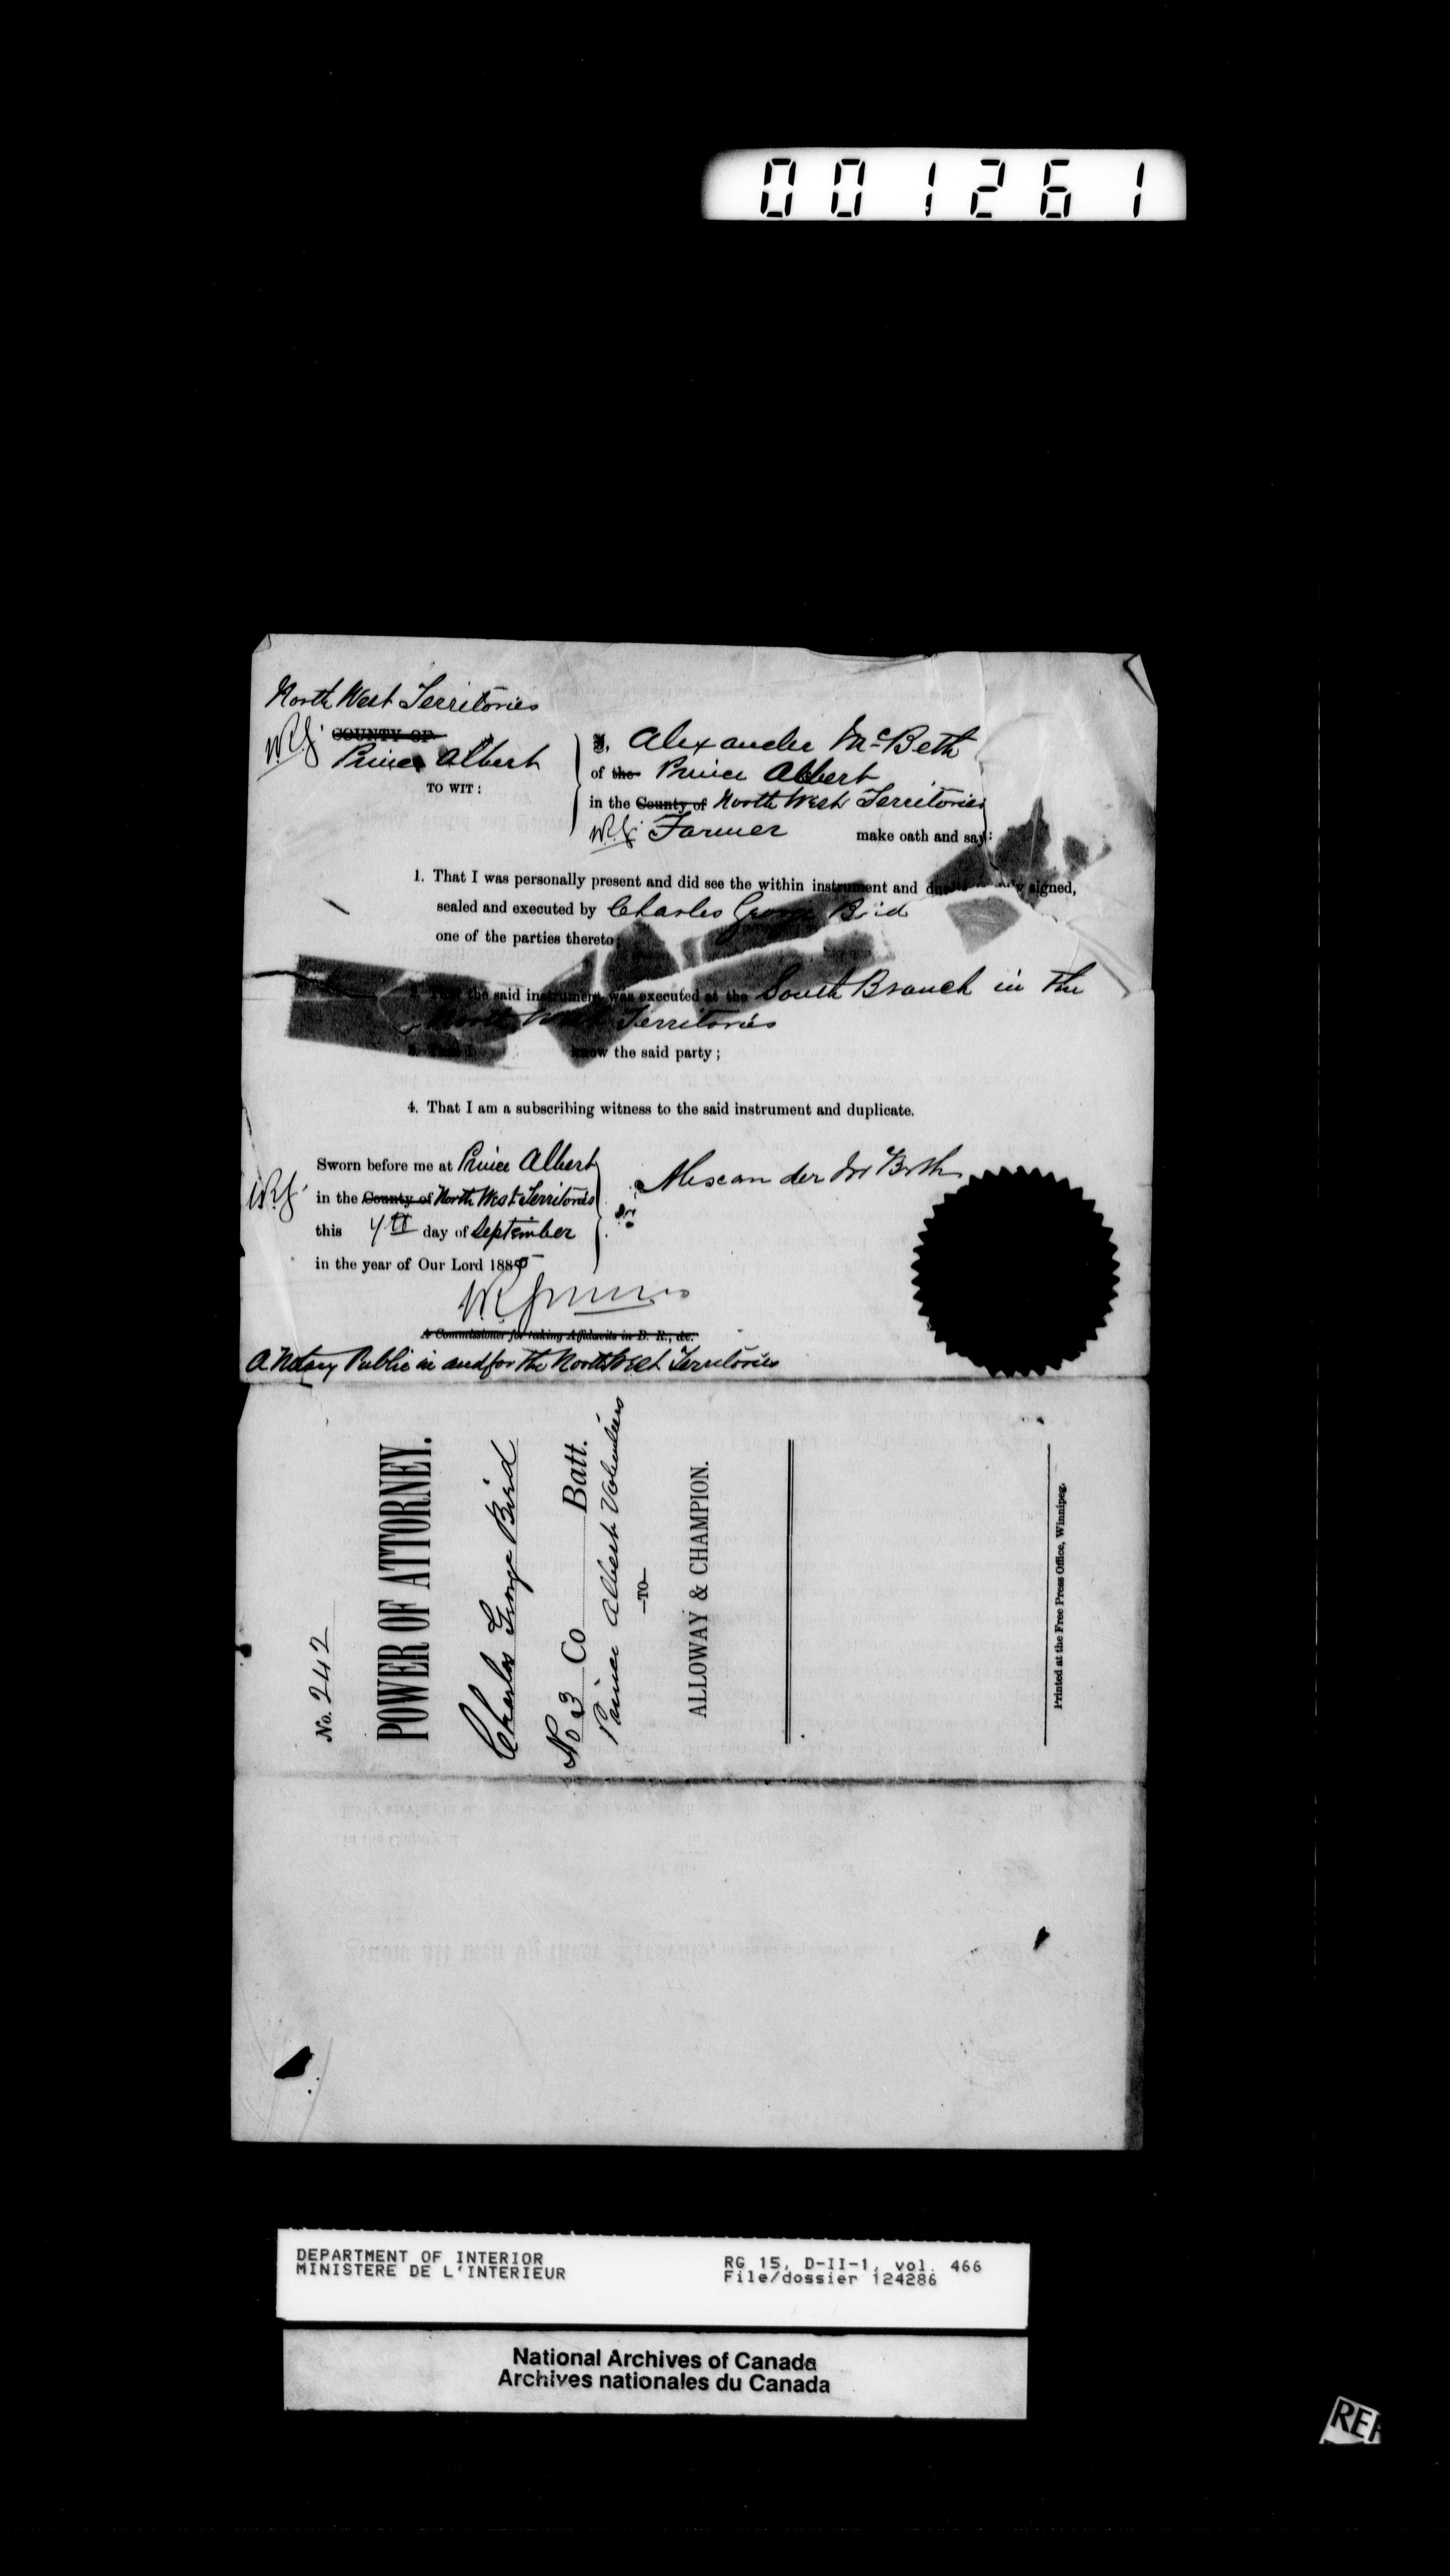 001261
North West Territories
W.R.G. COUNTY OF
Prince Albert
TO WIT:
I, Alexander McBeth
of the Prince Albert
in the County of North West Territories
W.R.G. Farmer make oath and say:
1. That I was personally present and did see the within instrument and signed,
sealed and executed by Charles George Bird
one of the parties thereto
2. That the said instrument was executed at the South Branch in the
North West Territories
3. That I know the said party;
4. That I am a subscribing witness to the said instrument and duplicate.
Sworn before me at Prince Albert
W.R.G. in the County of North West Territories
this day of September
in the year of Our Lord 1885
Alexander McBeth
A Commissioner for taking Affidavits in B. R., &c.
A Notary Public in and for the North West Territories
No. 242
POWER OF ATTORNEY.
Charles George Bird
No 3 Co Batt.
Prince Albert Volunteers
—TO—
ALLOWAY & CHAMPION.
Printed at the Free Press Office, Winnipeg.
DEPARTMENT OF INTERIOR
MINISTERE DE L'INTERIEUR
RG 15, D-II-1, vol. 466
File/dossier 124286
National Archives of Canada
Archives nationales du Canada